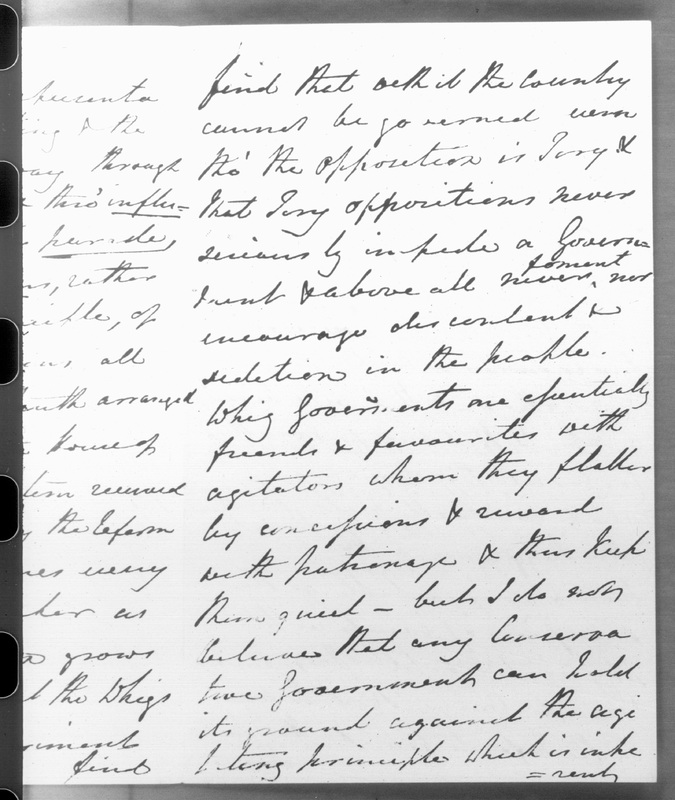 ing & the
through
thro' influ=
parade,
rather
of
all
arranged
House of
received
the Reform
every
as
grows
the Whigs
find
find that with it the Country
cannot be governed even
tho' the opposition is Tory &
that Tory oppositions never
seriously impede a Govern=
ment & above all never foment, nor
encourage discontent &
sedition in the people.
Whig Governments are essentially
friends & favourites with
agitators whom they flatter
by concessions & reward
with patronage & thus keep
them quiet – but I do not
believe that any Conserva
tive Government can hold
its ground against the agi
tating principle which is inhe
=rent